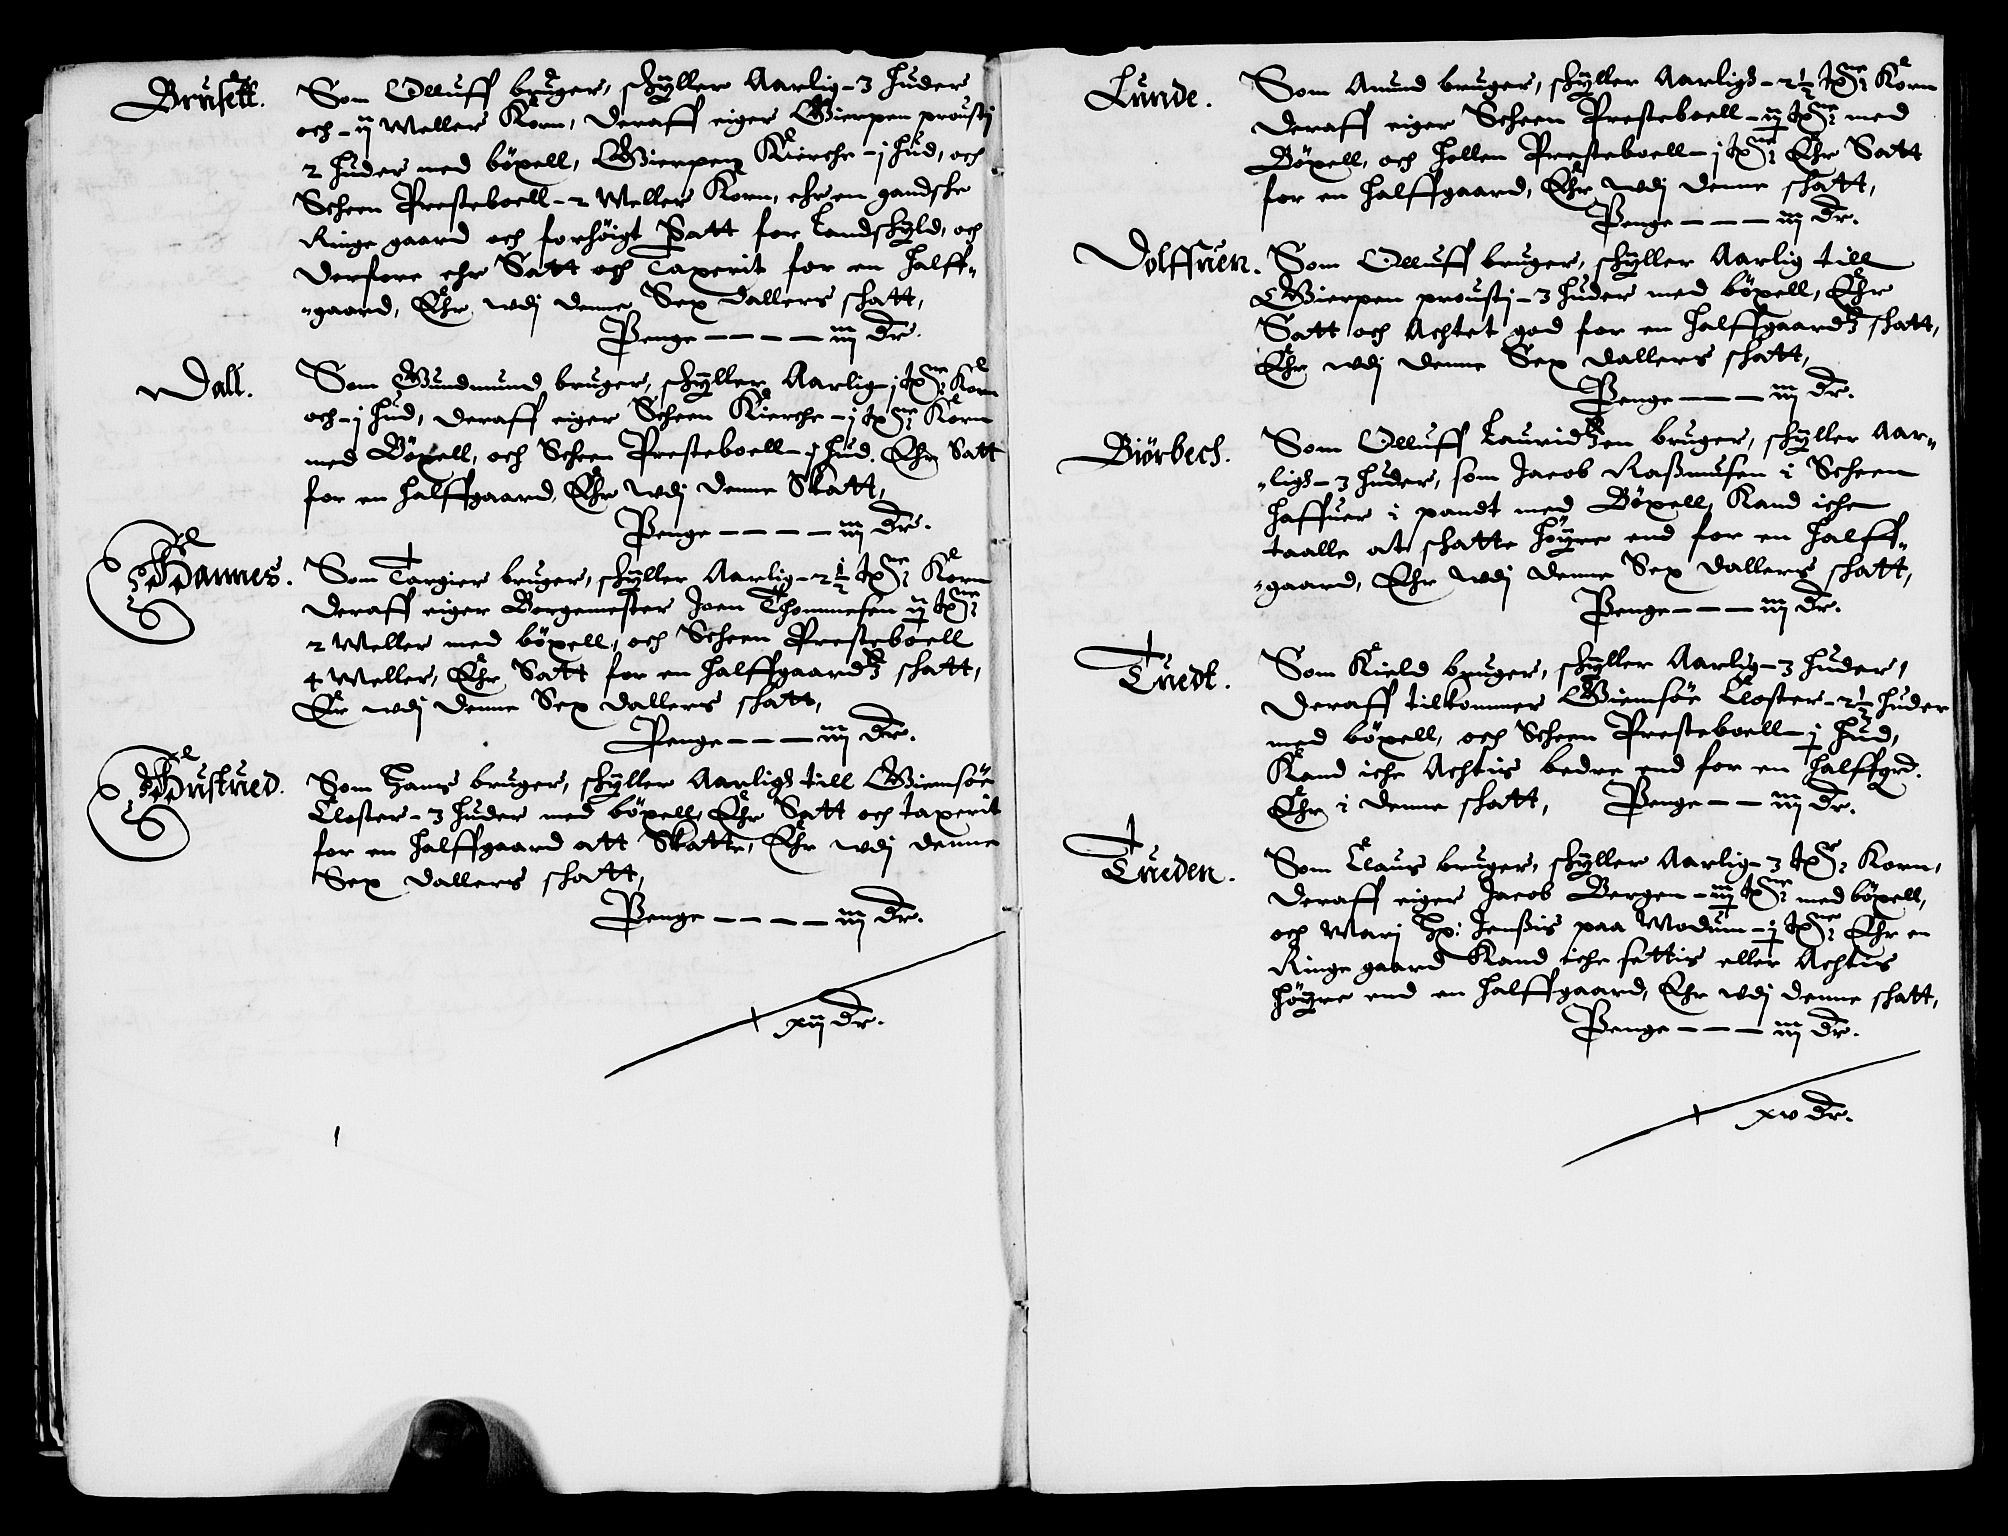 Brusett.
Som Olluff bruger, schÿller Aarlig - 3 huder
och - ij Meller Korn, deraff eiger Gierpen prousti
2 huder med böxell, Gierpens Kierche - j hud, och
Scheen Presteboell - 2 Meller Korn, ehr en gandske
Ringe gaard och forhöigt Satt for Landschÿld, och
derfore ehr Satt och Taxerit for en halff-
gaard, Ehr wdj denne Sex dallers schatt,
Penge - - - - iij dr.
Dall.
Som Gundmund bruger, schÿller Aarlig - j tx: Korn
och - j hud, deraff eiger Scheen Kierche - j tx: Korn
med Böxell, och Scheen Presteboell - j hud. Ehr Satt
for en halffgaard, Ehr wdj denne Skatt,
Penge - - - - iij dr.
Hannes.
Som Targier bruger, schÿller Aarlig - 2 1/2 tx: Korn
deraff eiger Borgemester Joen Thommesen ij tx:
2 Meller med böxell, och Scheen Presteboell
4 Meller, Ehr Satt for en halffgaards schatt,
Er wdj denne Sex dallers schatt,
Penge - - - iij dr.
Hustued.
Som Hans bruger, schÿller Aarligs till Giemsöe
Closter - 3 huder med böxell, Ehr Satt och taxerit
for en halffgaard att Skatte, Ehr wdj denne
Sex dallers schatt,
Penge - - - - iij dr.
xij dr.
Lunde.
Som Anund bruger, schÿller Aarligs - 2 1/2 tx: Korn
deraff eiger Scheen Presteboell - ij tx: med
Böxell, och Hollen Presteboell - j tx: Ehr Satt
for en halffgaard, Ehr wdj denne schatt,
Penge - - - iij dr.
Dolffuen.
Som Olluff bruger, schÿller Aarlig till
Gierpen prousti - 3 huder med böxell, Ehr
Satt och Achtet god for en halffgaards schatt,
Ehr wdj denne Sex dallers schatt,
Penge - - - iij dr.
Biörbech.
Som Olluff Lauridsen bruger, schÿller Aar-
ligs - 3 huder, som Jacob Rasmusen i Scheen
haffuer i pandt med Böxell, Kand iche
taalle at schatte höÿre end for en halff-
gaard, Ehr wdj denne Sex dallers schatt,
Penge - - - iij dr.
Tuedt.
Som Kield bruger, schÿller Aarlig - 3 huder,
deraff tilkommer Giemsöe Closter - 2 1/2 huder
med böxell, och Scheen Presteboell - j hud,
Kand iche Achtis bedre end for en halffgrd.
Ehr i denne schatt, Penge - - iij dr.
Tueden.
Som Claus bruger, schÿller Aarlig - 3 tx: Korn,
deraff eiger Jacob Bergen - iij tx: med böxell,
och Mari Hr: Jensis paa Modum - j tx: Ehr en
Ringe gaard Kand iche settis eller Achtis
höÿre end en halffgaard, Ehr wdj denne schatt,
Penge - - - iij dr.
xv dr.